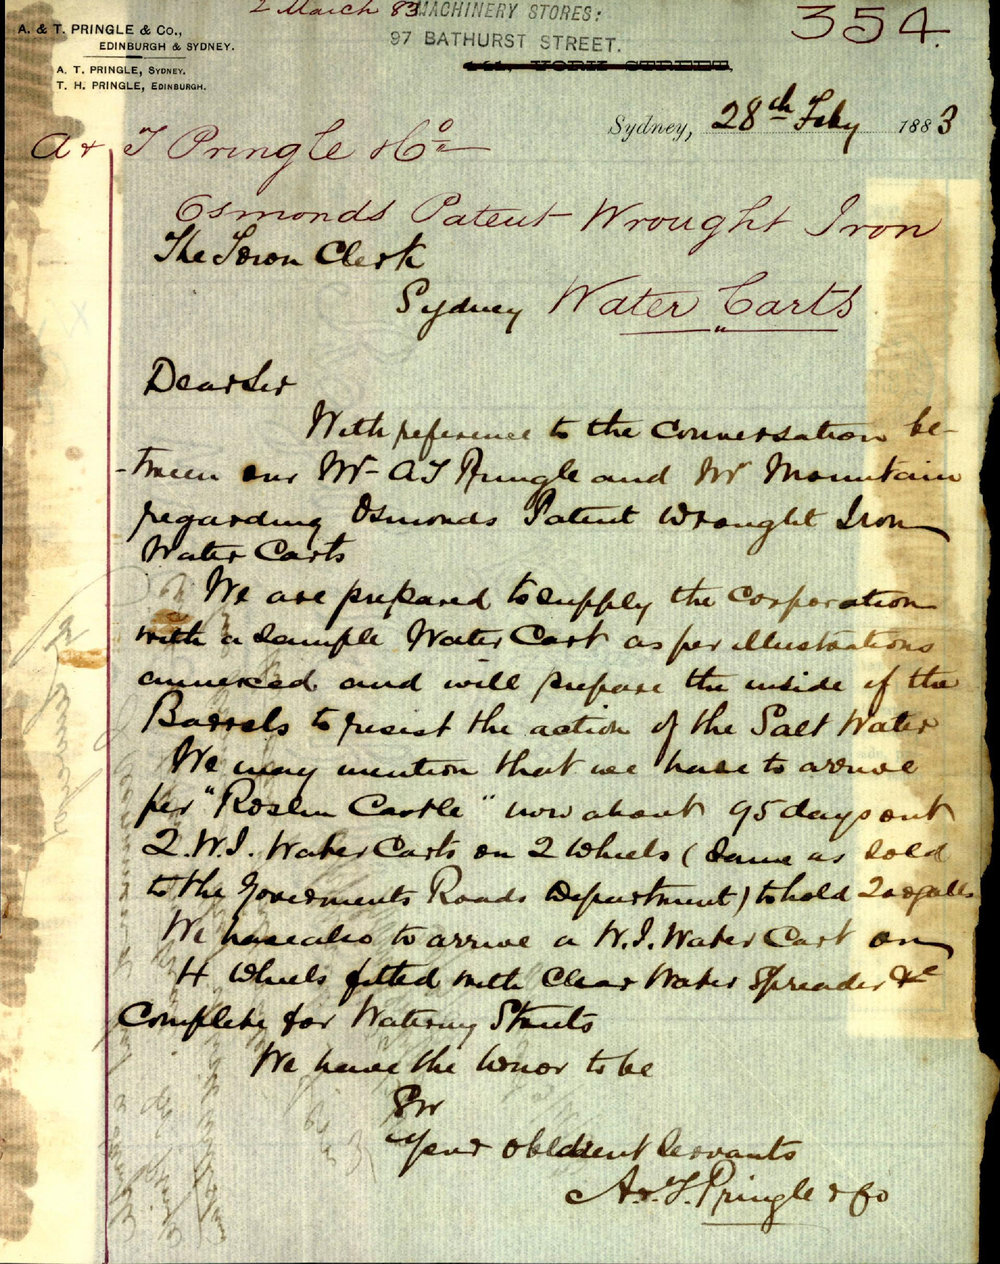 2 March 83
MACHINERY STORES:
354.
A. & T. PRINGLE & Co.,
97 BATHURST STREET.
EDINBURGH & SYDNEY.
A. T. PRINGLE, SYDNEY.
T. H. PRINGLE, EDINBURGH.
Sydney, 28th Feby 1883
A & T Pringle & Co
Osmonds Patent Wrought Iron
The Town Clerk
Sydney Water Carts
Dear Sir
With reference to the Conversation be-
-tween our Mr A T Pringle and Mr Mountain
regarding Osmonds Patent Wrought Iron
Water Carts
We are prepared to supply the Corporation
with a Sample Water Cart as per illustrations
annexed and will prepare the inside of the
Barrels to resist the action of the Salt Water
We may mention that we have to arrive
per "Roslin Castle" now about 95 days out
2. W.I. Water Carts on 2 Wheels (Same as sold
to the Goverments Roads Department) to hold galls
We have also to arrive a W.I. Water Cart on
4 Wheels fitted with Clear Water Spreader &c
Complete for Watering Streets
We have the honor to be
Sir
Your obedient Servants
A. & T. Pringle & Co